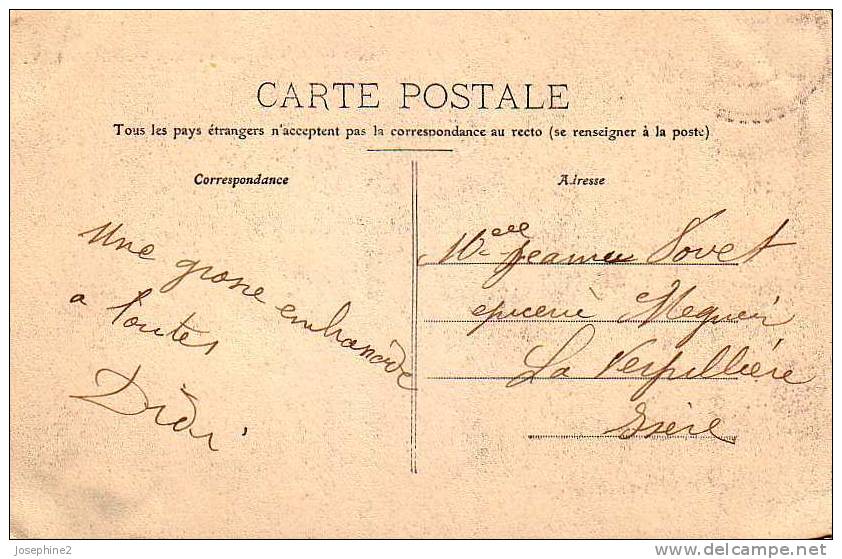 CARTE POSTALE
Tous les pays étrangers n'acceptent pas la correspondance au recto (se renseigner à la poste)
Correspondance
Adresse
Une grosse embrassade
a toutes
Didi
Melle Jeanne Vovet
epicerie
La Verpillière
Isère
Josephine2
www.delcampe.net